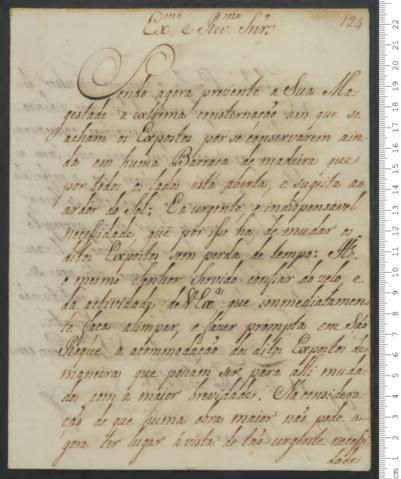 124
Ex.mo e Rev.mo Snr.
Sendo agora prezente a Sua Ma-
gestade a extrema consternação em que se
acham os Expostos por se conservarem ain-
da em huma Barraca de madeira que
por todos os lados está aberta, e sugeita ao
ardor do Sol; E a urgente e indispensavel
necessidade que por isso ha de mudar os
ditos Expostos sem perda de tempo: He
o mesmo Senhor servido confiar do zelo e
da actividade de V. Ex.a que immediatamen-
te faça alimpar, e fazer prompta em São
Roque a acommodação dos ditos Expostos de
maneira que possam ser para alli muda-
dos com a maior brevidade. Na considera-
ção de que huma obra maior não pode a-
gora ter lugar á vista de tão urgente necessi
dade
cm 1 2 3 4 5 6 7 8 9 10 11 12 13 14 15 16 17 18 19 20 21 22